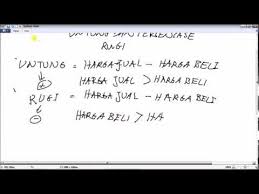 UNTUNG DAN PERSENTASE
RUGI
UNTUNG = HARGA JUAL - HARGA BELI
+ HARGA JUAL > HARGA BELI
RUGI = HARGA JUAL - HARGA BELI
- HARGA BELI > HA